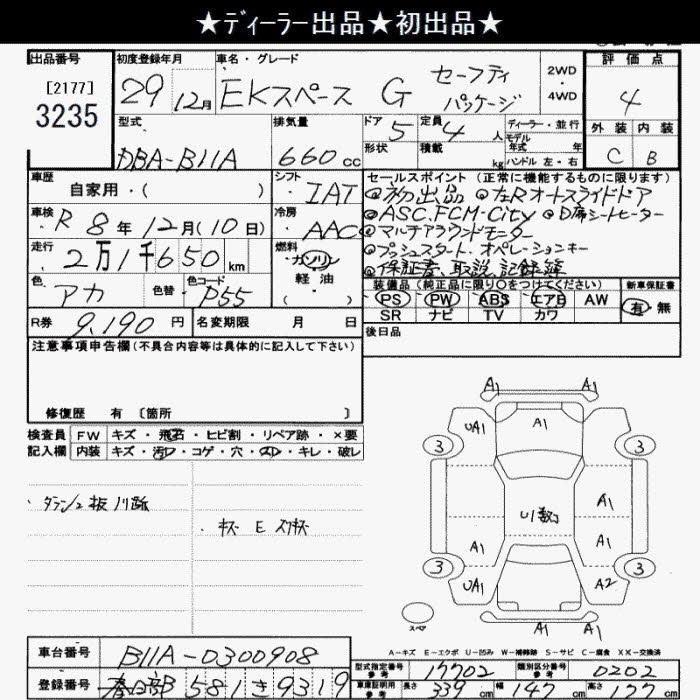 ★ディーラー出品★初出品★
出品番号 初度登録年月 車名・グレード 評価点
[2177] 3235
29 12月 EKスペース G セーフティ パッケージ 2WD・4WD 4
型式 排気量 ドア 定員 ディーラー・並行 外装 内装
DBA-B11A 660cc 5 4人 モデル 年式 年 C B
形状 積載 kg ハンドル 左・右
車歴 シフト セールスポイント(正常に機能するものに限ります)
自家用・( ) IAT
◎初出品 ◎左Rオートスライドドア
車検 冷房 ◎ASC.FCM-City ◎D席シートヒーター
R 8年 12月(10日) AAC ◎マルチアラウンドモニター
走行 燃料 ◎プッシュスタート.オペレーションキー
2万1千650km ガソリン 軽油 ( ) ◎保証書、取説、記録簿
色 色替 色コード 装備品(純正品に限り○をつけてください) 新車保証書
アカ P55 PS PW ABS エアB AW 有・無
SR ナビ TV カワ
R券 9,190円 名変期限 月 日 後日品
注意事項申告欄(不具合内容等は具体的に記入して下さい)
修復歴 有 [箇所 ]
検査員 FW キズ・飛石・ヒビ割・リペア跡・×要
記入欄 内装 キズ・汚レ・コゲ・穴・スレ・キレ・破レ
A1 A1
UA1 A1
3 3
U1数コ A1
A1 A1
3 3
UA1 A2
スペア A1 A1
A-キズ E-エクボ U-凹み W-補修跡 S-サビ C-腐食 XX-交換済
車台番号 B11A-0300908
型式指定番号 参考 17702 類別区分番号 参考 0202
登録番号 春日部 581 き 9319
車庫証明用 参考 長さ 339cm 幅 147cm 高さ 177cm